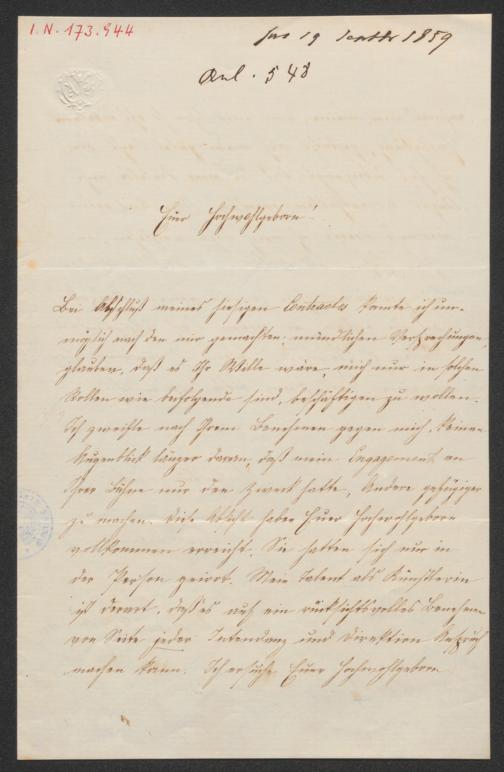 I.N. 173.944
19 Septbr 1859
Anl. 548
Euer Hochwohlgeborn!
Bei Abschluß meines hiesigen Contractes konnte ich un-
möglich nach den mir gemachten mündlichen Versprechungen
glauben, daß es Ihr Wille wäre, mich nur in solchen
Rollen wie beifolgende sind, beschäftigen zu wollen.
Ich zweifle nach Ihrem Benehmen gegen mich, keinen
Augenblick länger daran, daß mein Engagement an
Ihrer Bühne nur den Zweck hatte, Andere gefügiger
zu machen. Diese Absicht haben Euer Hochwohlgeborn
vollkommen erreicht. Sie hatten sich nur in
der Person geirrt. Mein Talent als Künstlerin
ist derart, daß es auf ein rücksichtsvolles Benehmen
von Seite jeder Intendanz und Direktion Anspruch
machen kann. Ich ersuche Euer Hochwohlgeborn